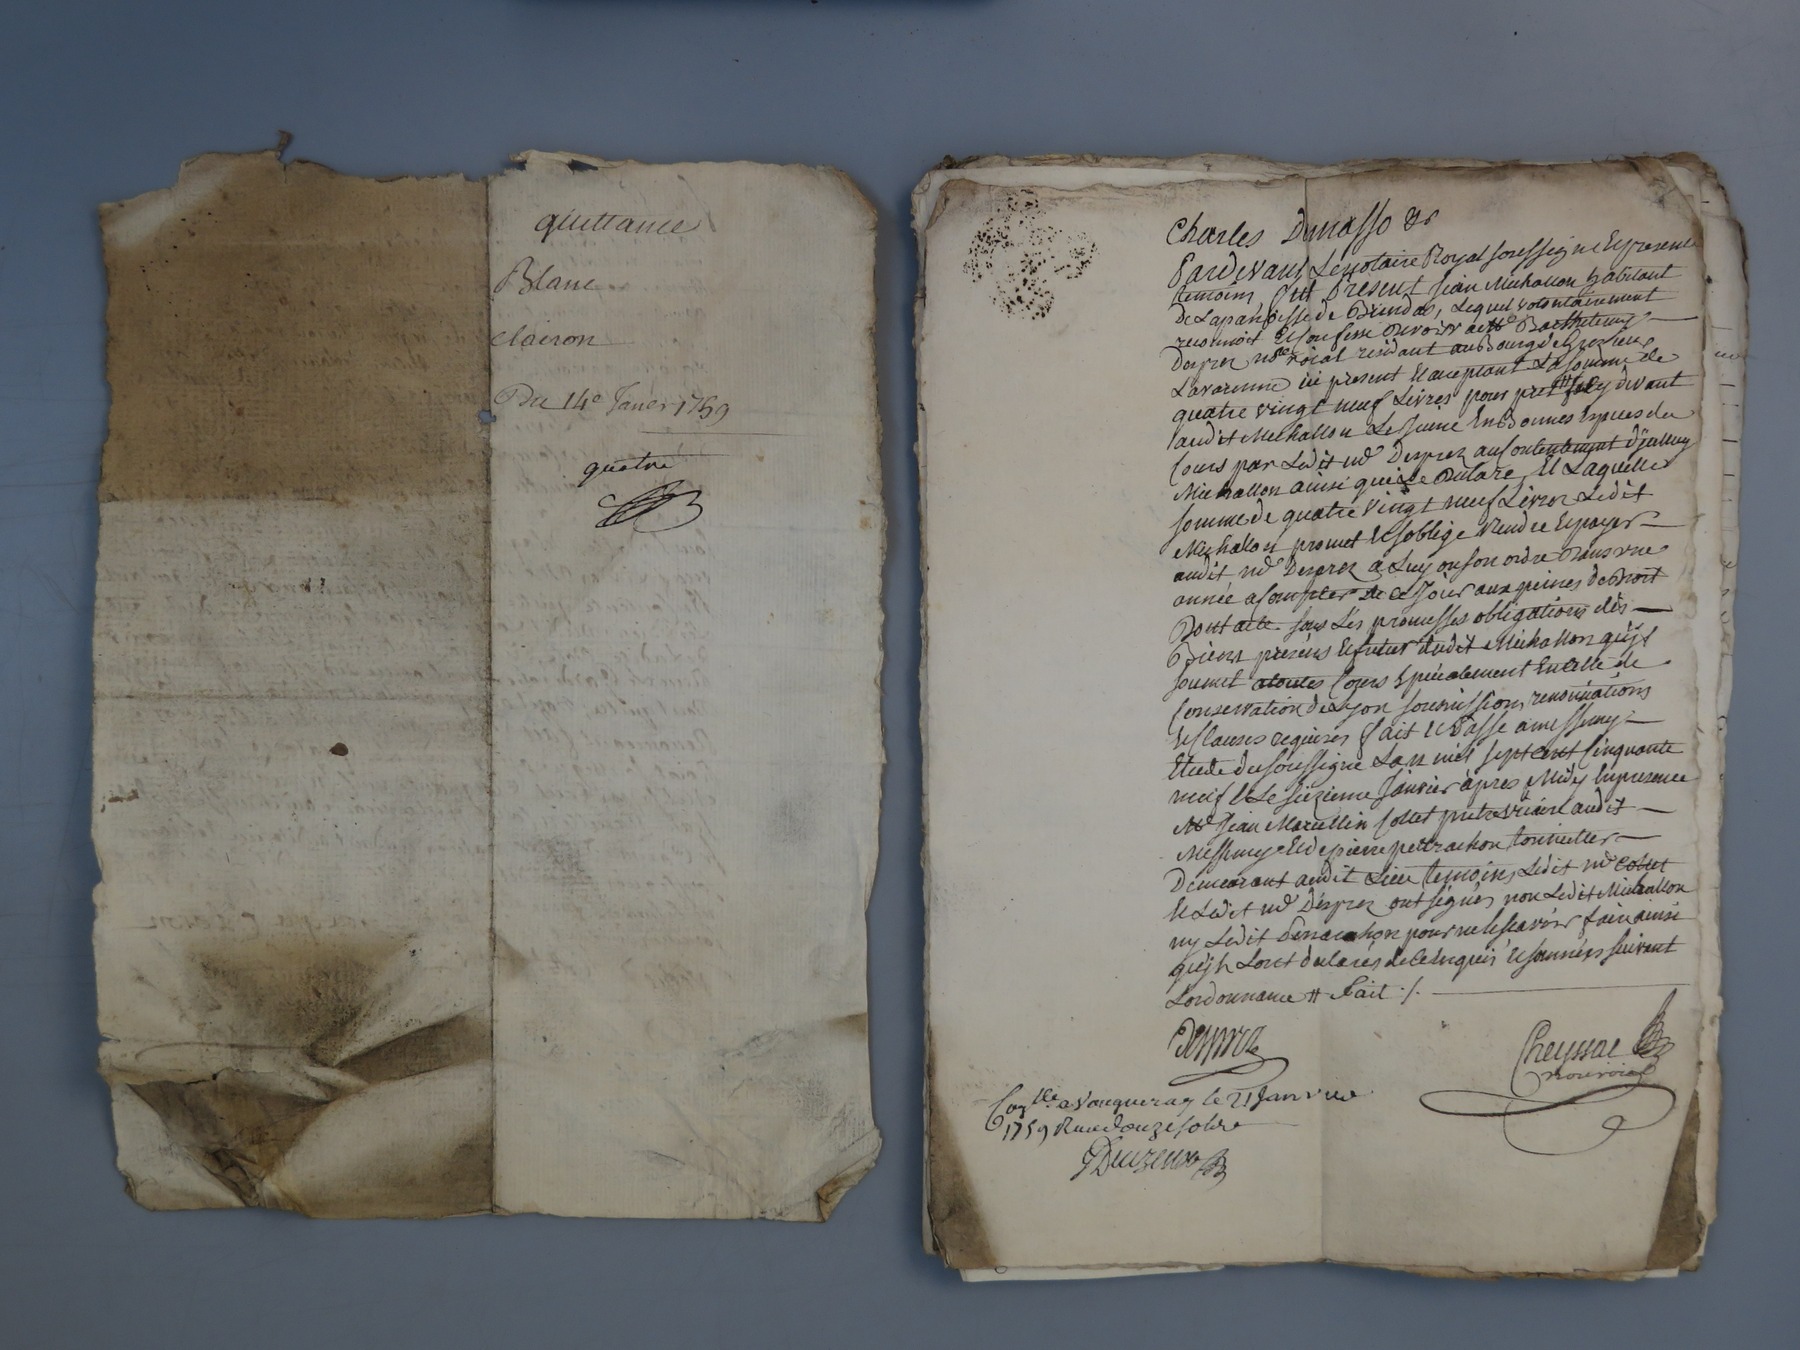 quittance
Blanc
clairon
Du 14e Janer 1759
quatre
Charles Dumasso
Pardevant Le notaire Royal soussigné Et presents
temoins, fut present Jean Michallon habitant
De La paroisse de Brindas, Lequel volontairement
reconnoit Et Confesse Devoir a Me Barthelemy
Desprez nre roial residant au Bourg de
Lavarenne ici present Et aceptant La somme de
quatre vingt neuf Livres pour pret fait cy devant
audit Michallon Et
Cours par Ledit md Desprez au Contentement dudit
Michallon ainsi qu'il Le Declare, Et Laquelle
somme de quatre vingt neuf Livres Ledit
Michallon promet Et s'oblige rendre Et payer
audit md Desprez a Luy ou son ordre Dans une
année a Compter de ce Jour aux peines de Droit
Dont acte. sous Les promesses obligations des
Biens presens Et futur dudit Michallon qu'il
soumet a toutes Cours Specialement En Celle de
Conservation de Lyon soumission, renonciations
Et Clauses requises fait Et Passé a messimy
Etude du soussigné Lan mil sept cent Cinquante
neuf Et Le seizieme Janvier apres Midy En presence
Me Jean Marcellin Collet pretre vicaire audit
Messimy Et de pierre perrachon tonnellier
Demeurant audit Lieu temoins, Ledit md Collet
Et Ledit md Desprez ont signés non Ledit Michallon
ny Ledit Perrachon pour ne le scavoir faire ainsi
qu'ils L'ont declarés de Ce Enquis Et sommés suivant
L'ordonnance # fait ./.
Desprez
Cheyssac
no. roial
Conlle a Vaugneray le 21 Janvier
1759 Reçu douze sols